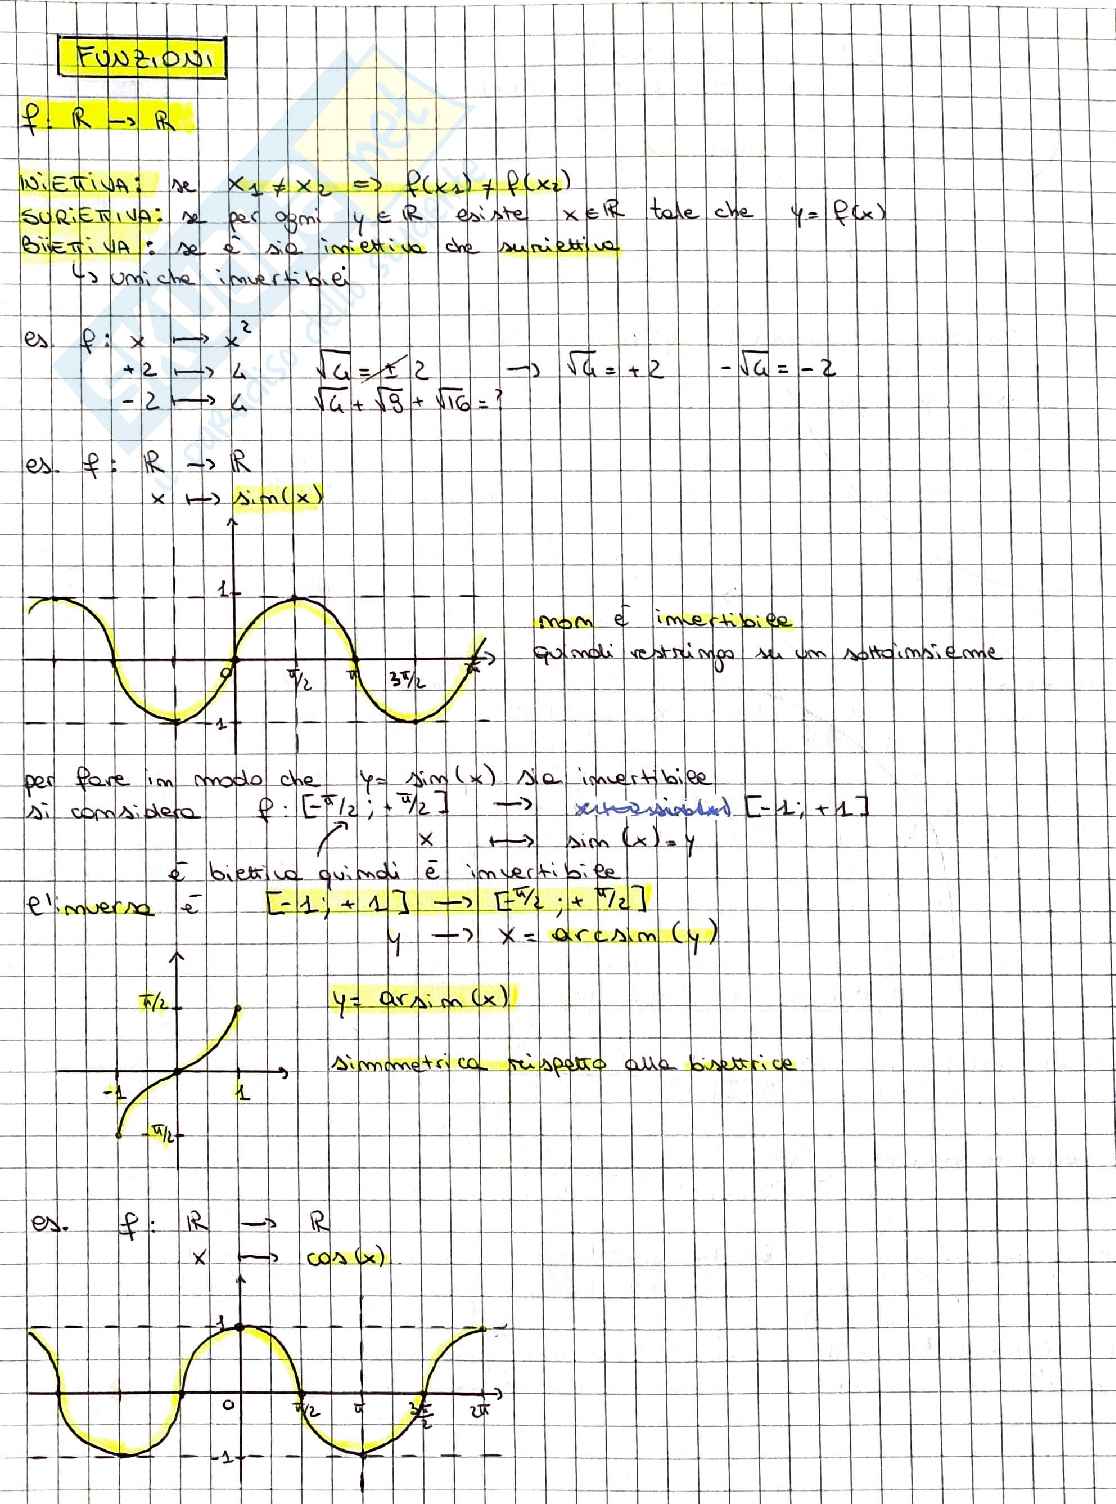 FUNZIONI
f: ℝ → ℝ
INIETTIVA: se x1 ≠ x2 => f(x1) ≠ f(x2)
SURIETTIVA: se per ogni y ∈ ℝ esiste x ∈ ℝ tale che y = f(x)
BIIETTIVA: se è sia iniettiva che suriettiva
↳ uniche invertibili
es. f: x ↦ x²
+2 ↦ 4 √4 = ± 2 → √4 = +2 -√4 = -2
-2 ↦ 4 √4 + √9 + √16 = ?
es. f: ℝ → ℝ
x ↦ sin(x)
1
0 π/2 π 3π/2
-1
non è invertibile
quindi restringo su un sottoinsieme
per fare in modo che y = sin(x) sia invertibile
si considera f: [-π/2; +π/2] → [-1; +1]
x ↦ sin(x) = y
è biettiva quindi è invertibile
l'inversa è [-1; +1] → [-π/2; +π/2]
y → x = arcsin(y)
π/2
y = arsin(x)
simmetrica rispetto alla bisettrice
-1 1
-π/2
es. f: ℝ → ℝ
x ↦ cos(x)
1
0 π/2 π 3π/2 2π
-1